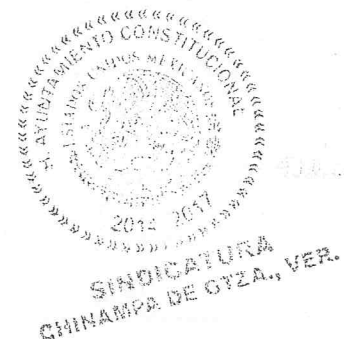 H. AYUNTAMIENTO CONSTITUCIONAL
ESTADOS UNIDOS MEXICANOS
2014 2017
SINDICATURA
CHINAMPA DE GTZA., VER.